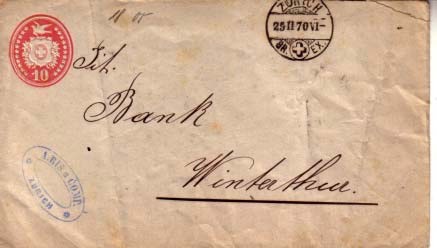 ZÜRICH
25 II 70 VI-
BR. EX.
10
Tit.
Bank
Winterthur.
& COMP.
ZÜRICH